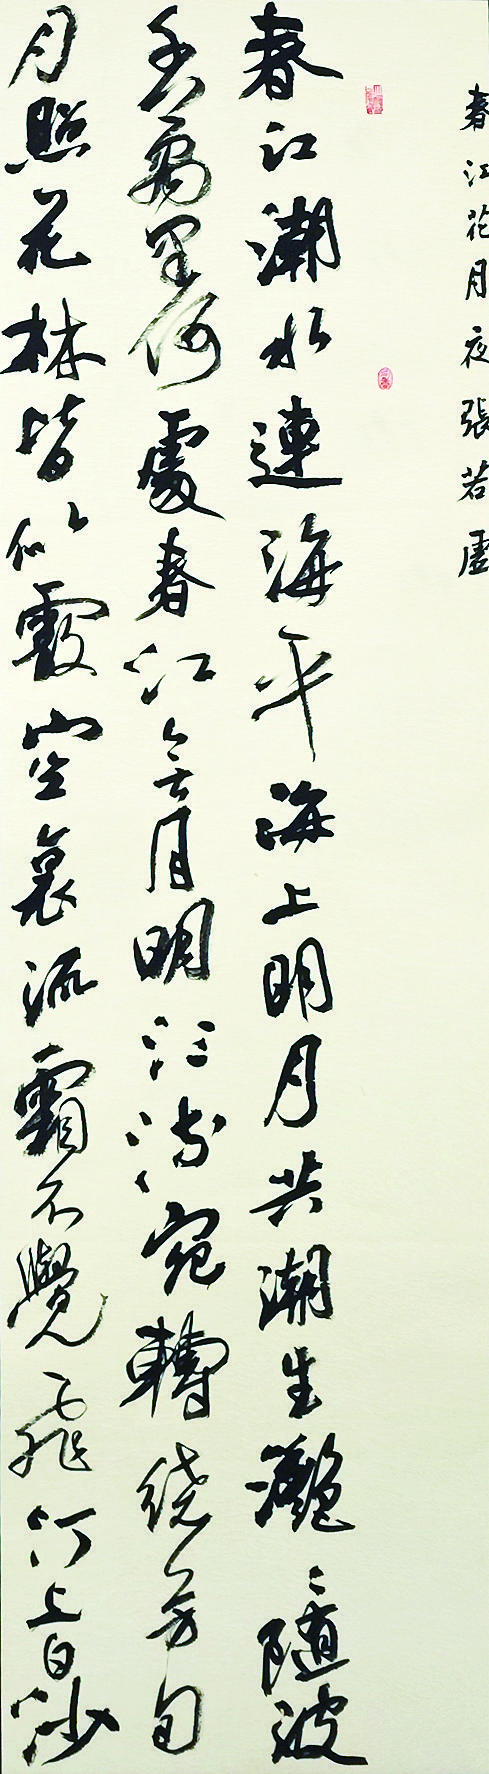 春江花月夜張若虛
春江潮水連海平海上明月共潮生灩〻隨波
千萬里何處春江無月明江流宛轉繞芳甸
月照花林皆似霰空裏流霜不覺飛汀上白沙